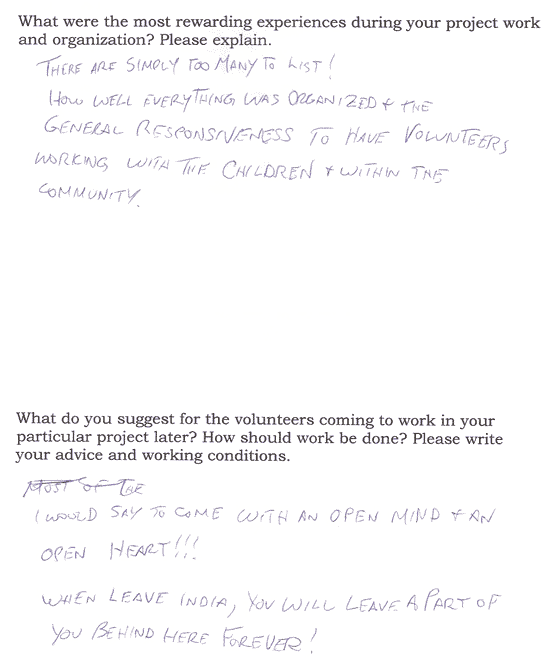 What were the most rewarding experiences during your project work
and organization? Please explain.
THERE ARE SIMPLY TOO MANY TO LIST!
HOW WELL EVERYTHING WAS ORGANIZED & THE
GENERAL RESPONSIVENESS TO HAVE VOLUNTEERS
WORKING WITH THE CHILDREN & WITHIN THE
COMMUNITY.
What do you suggest for the volunteers coming to work in your
particular project later? How should work be done? Please write
your advice and working conditions.
MOST OF THE
I WOULD SAY TO COME WITH AN OPEN MIND & AN
OPEN HEART!!!
WHEN LEAVE INDIA, YOU WILL LEAVE A PART OF
YOU BEHIND HERE FOREVER!